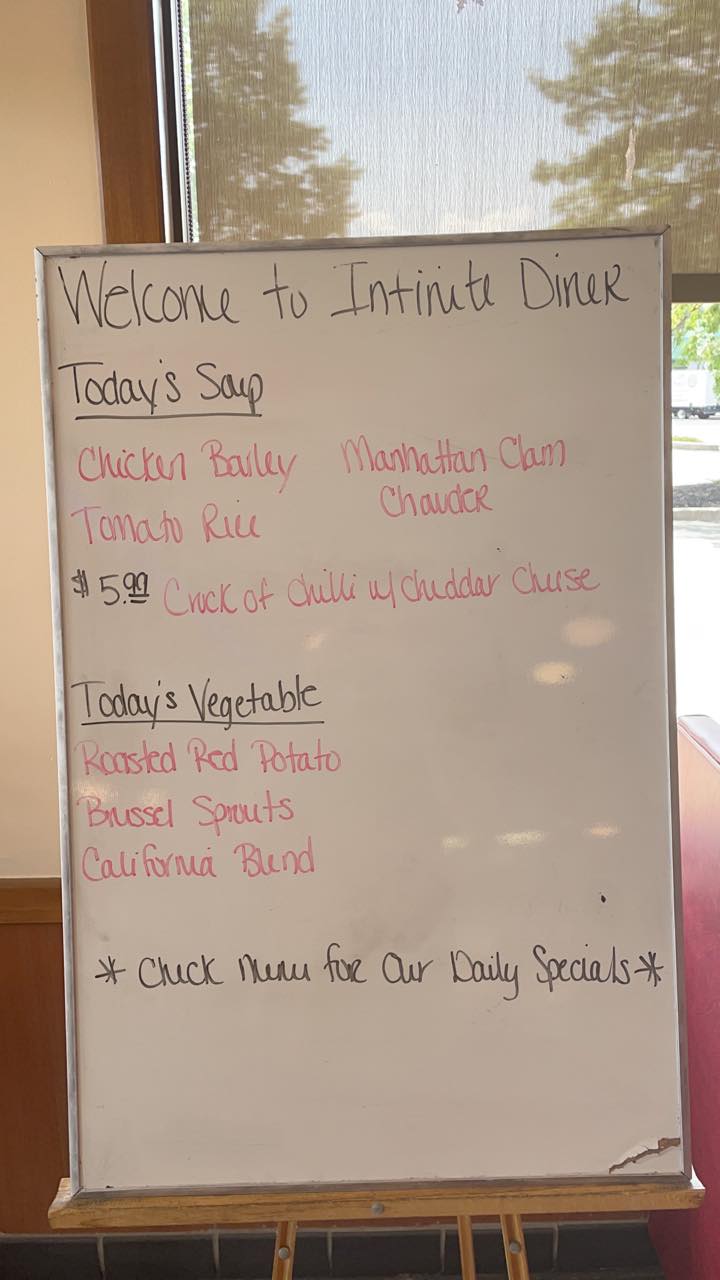 Welcome to Infinite Diner
Today's Soup
Chicken Barley
Manhattan Clam
Chowder
Tomato Rice
$5.99 Crock of Chilli w/ Cheddar Cheese
Today's Vegetable
Roasted Red Potato
Brussel Sprouts
California Blend
* Check Menu for Our Daily Specials *